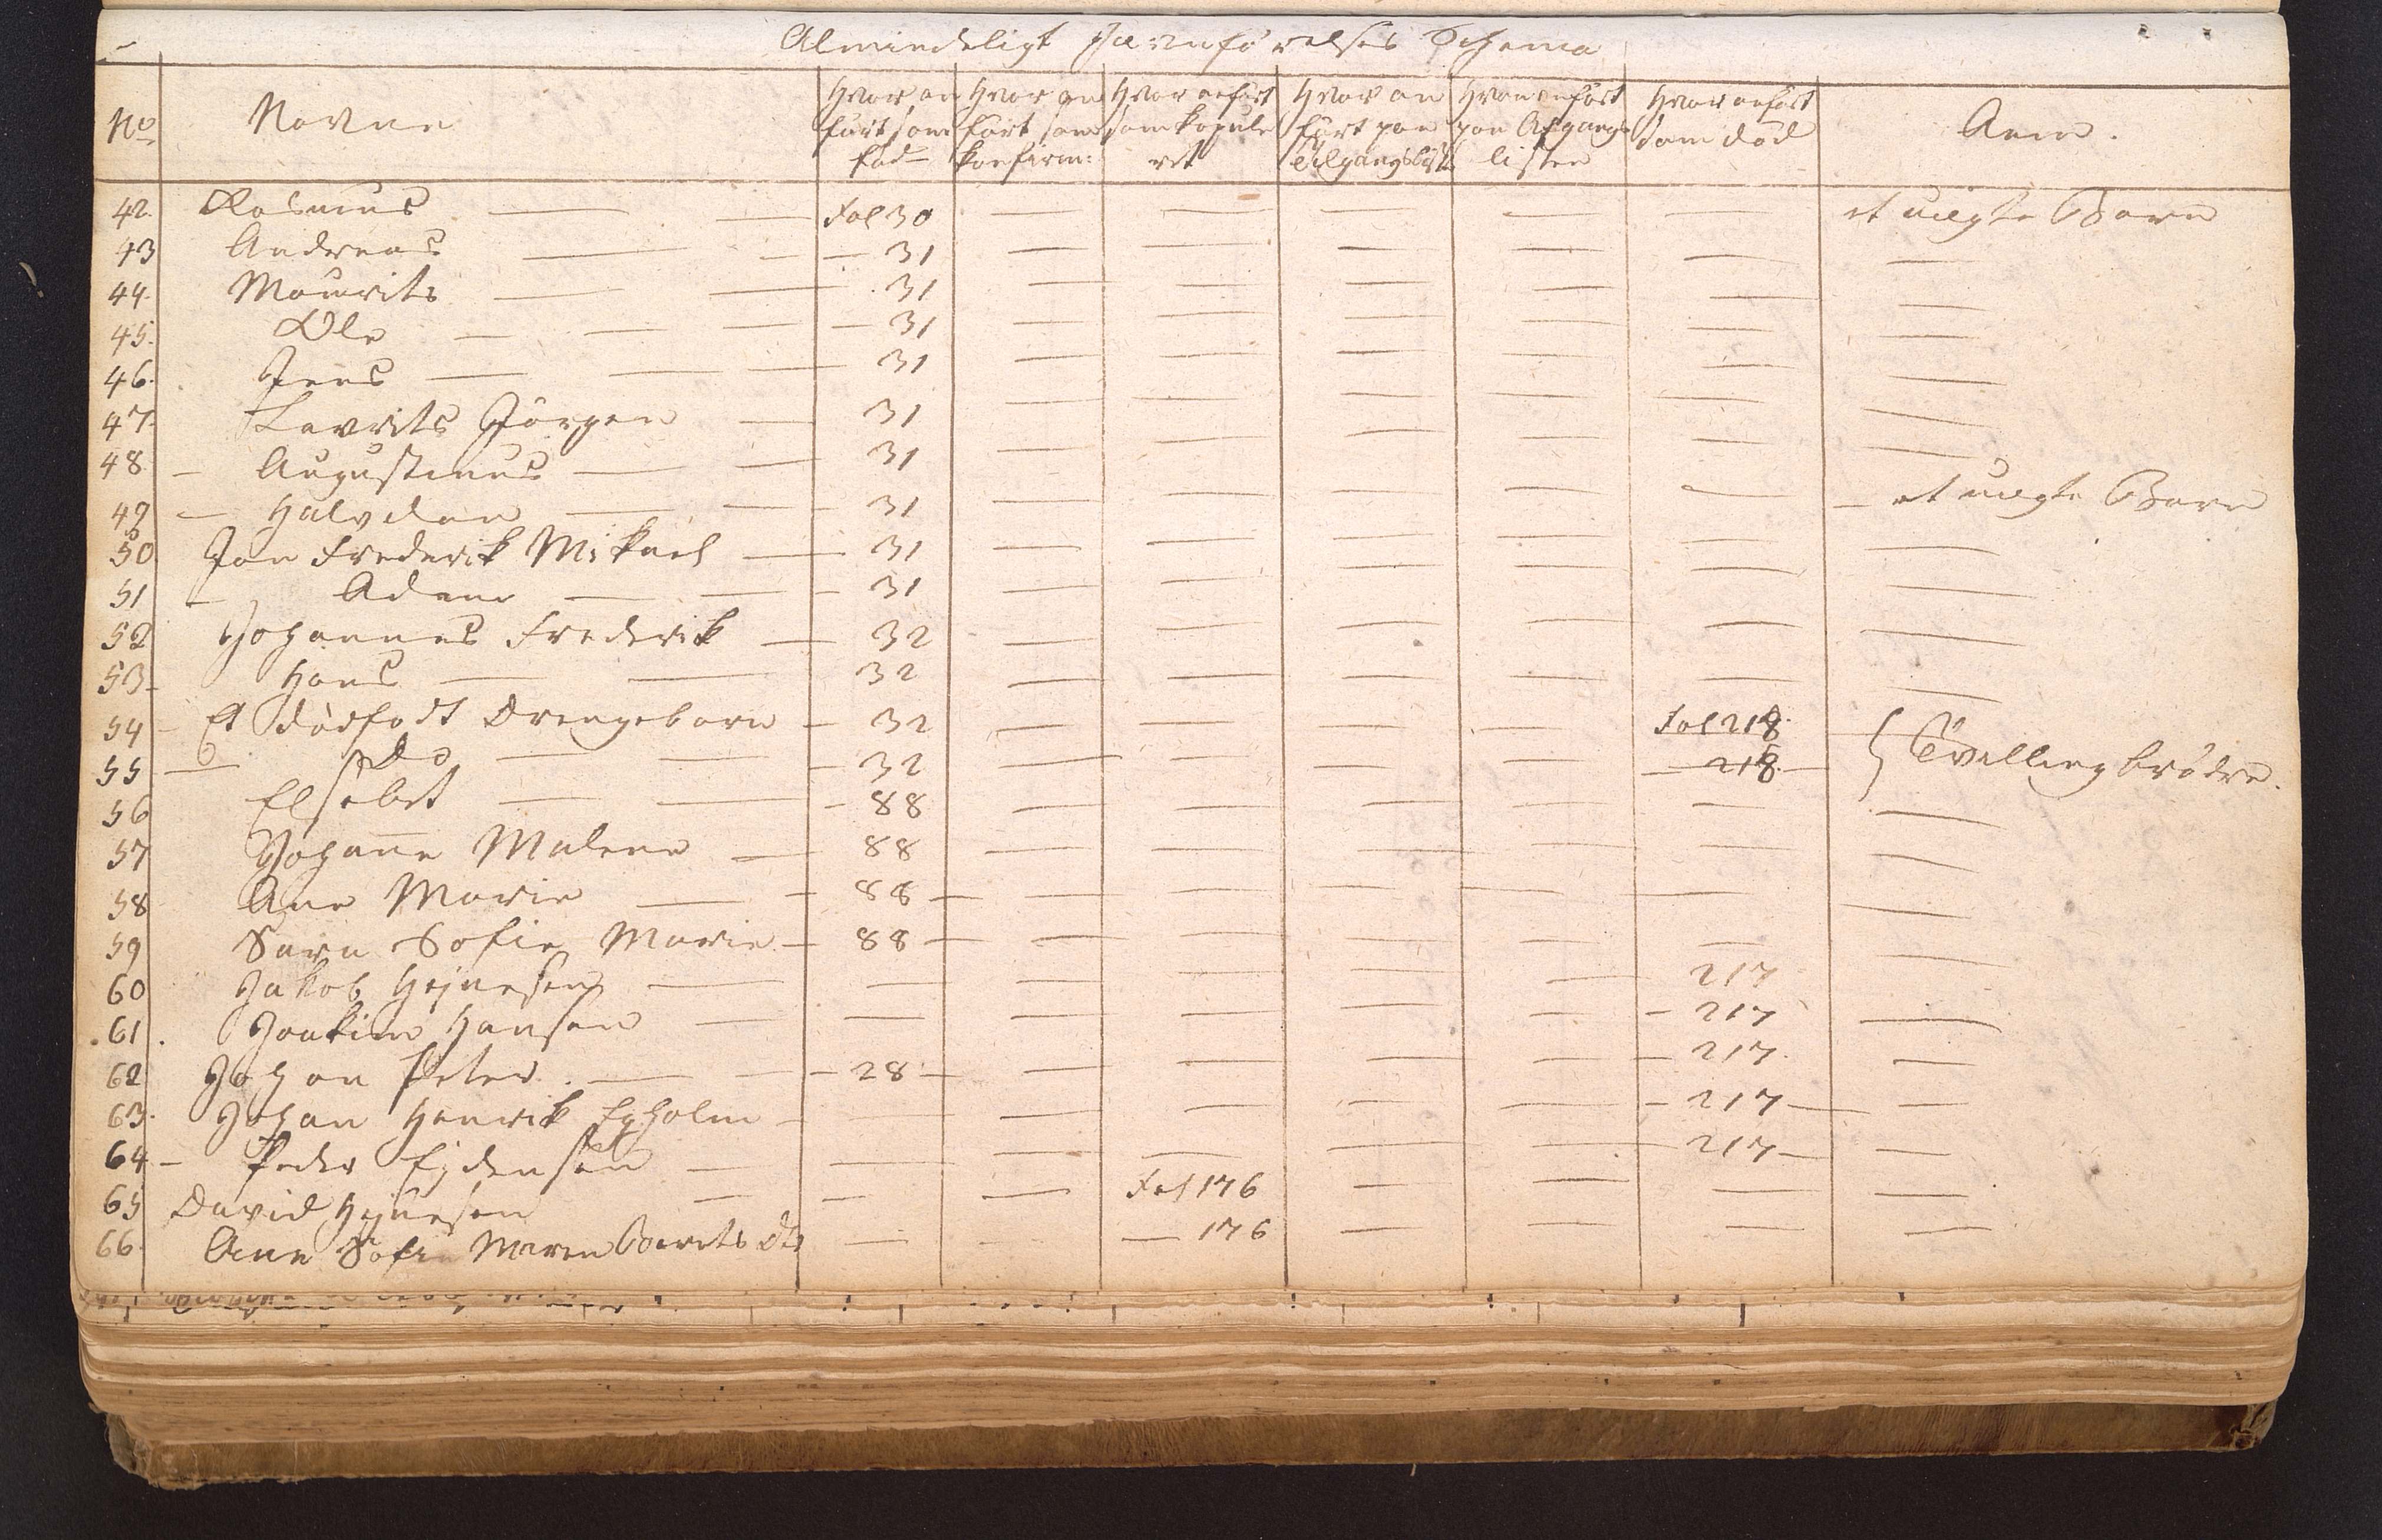 Almindeligt Jævnførelses Schema
No Navne Hvor anført som fød Hvor anført som konfirm: Hvor anført som kopuleret Hvor anført paa Tilgangslist Hvor anført paa Afgangslisten Hvor anført som død Anm.
42. Rasmus — — Fol 30 — — — — — et uægte Barn
43 Andreas — — — 31 — — — — — —
44. Mourits — — 31 — — — — — —
45. Ole — — — — 31 — — — — — —
46. Jens — — — 31 — — — — — —
47. Lavrits Jörgen — 31 — — — — — —
48 — Augustinus — — 31 — — — — — —
49 — Halvdan — — 31 — — — — — — et uægte Barn
50 Jan Frederik Mikael — 31 — — — — — —
51 — Adam — — 31 — — — — — —
52 Johannes Frederik — 32 — — — — — —
53 — Hans — — 32 — — — — — —
54 — Et dødfødt Drengebarn — 32 — — — — Fol 218 } Tvillingbrødre.
55 — Do — — 32 — — — — — 218 —
56 Elsebet — — — 88 — — — — — —
57 Johanne Malene — 88 — — — — — —
58 Ane Marie — — 88 — — — — — —
59 Sara Sofie Marie — 88 — — — — — —
60 Jakob Hejnesen — — — — — — 217 —
61. Joakim Hansen — — — — — — 217 —
62 Johan Peter. — — — 28 — — — — — — 217. —
63. Johan Henrik Egholm — — — — — — 217 — —
64 — Peder Ejdensen — — — — — — 217 — —
65 David Hejnesen — — — Fol 176 — — — —
66. Ane Sofie Maren Davids Dtr — — — 176 — — — —